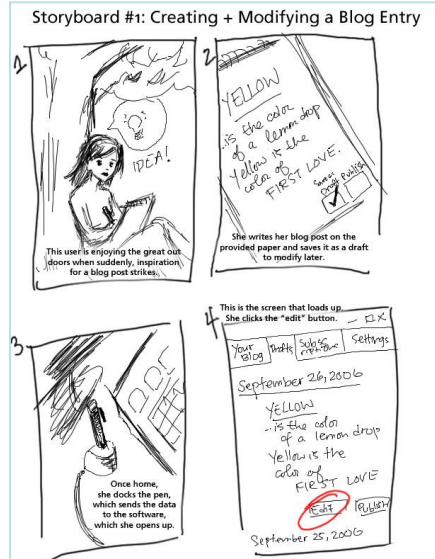 Storyboard #1: Creating + Modifying a Blog Entry
1
IDEA!
This user is enjoying the great out
doors when suddenly, inspiration
for a blog post strikes.
2
YELLOW
..is the color
of a lemon drop
Yellow is the
color of
FIRST LOVE.
Save as
Draft
Publish
She writes her blog post on the
provided paper and saves it as a draft
to modify later.
3
Once home,
she docks the pen,
which sends the data
to the software,
which she opens up.
4
This is the screen that loads up.
She clicks the "edit" button.
Your
Blog
Drafts
Subsc
riptions
Settings
September 26, 2006
YELLOW
..is the color
of a lemon drop
Yellow is the
color of
FIRST LOVE
Edit
Publish
September 25, 2006